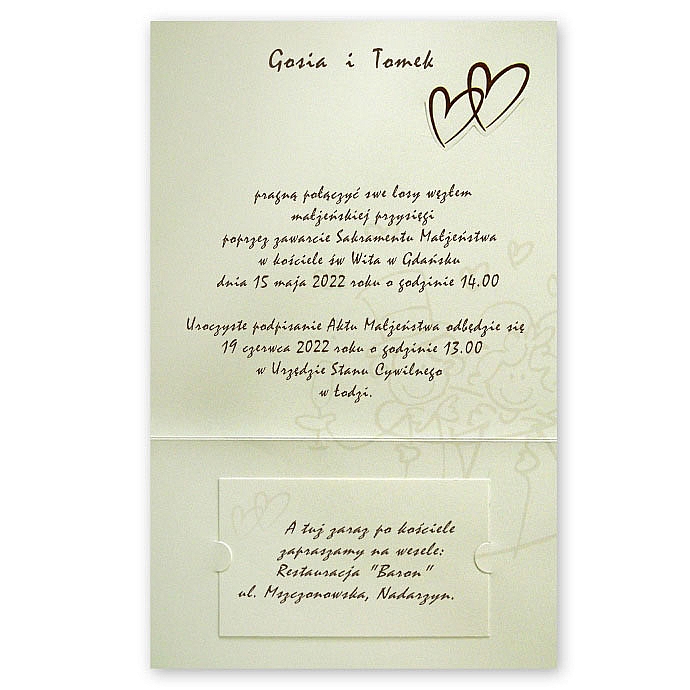 Gosia i Tomek
pragną połączyć swe losy węzłem
małżeńskiej przysięgi
poprzez zawarcie Sakramentu Małżeństwa
w kościele św Wita w Gdańsku
dnia 15 maja 2022 roku o godzinie 14.00
Uroczyste podpisanie Aktu Małżeństwa odbędzie się
19 czerwca 2022 roku o godzinie 13.00
w Urzędzie Stanu Cywilnego
w Łodzi.
A tuż zaraz po kościele
zapraszamy na wesele:
Restauracja "Baron"
ul. Mszczonowska, Nadarzyn.